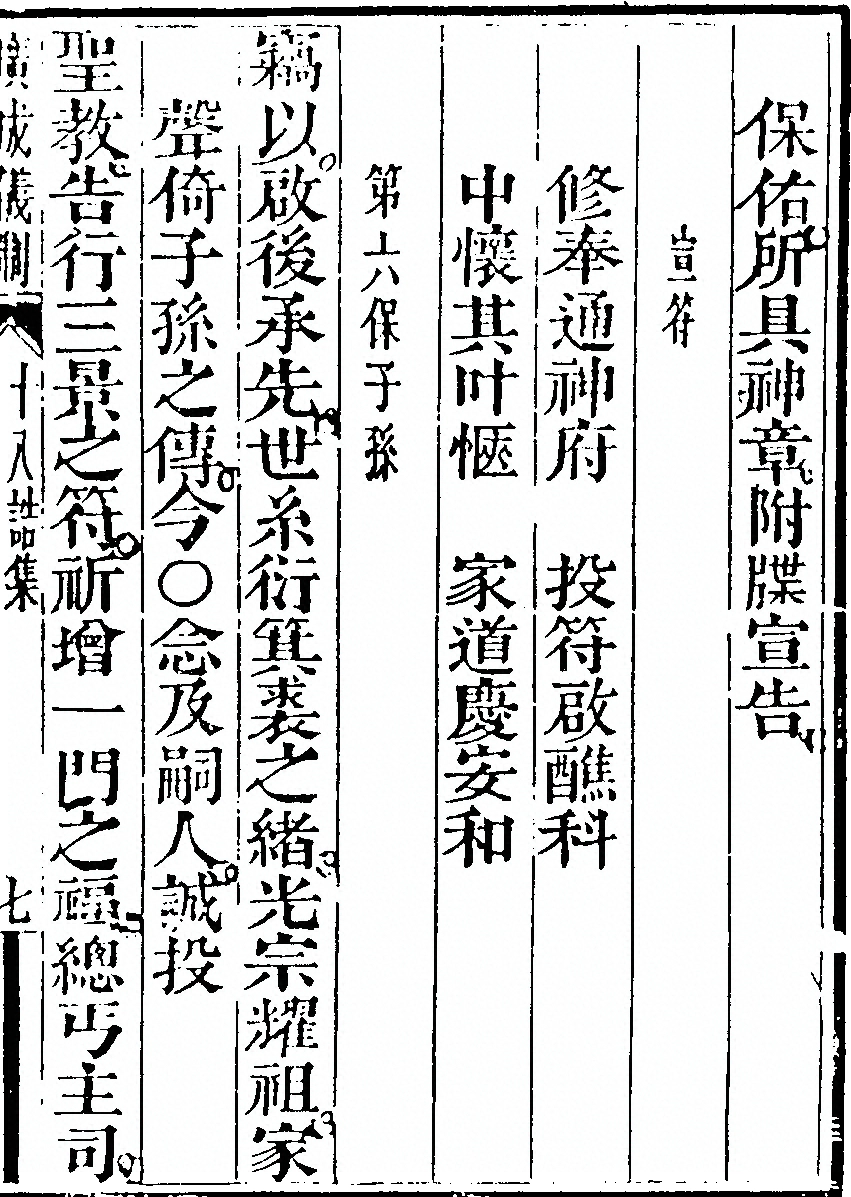 保佑所具神章附牒宣告
宣符
修奉通神府　投符啟醮科
中懷其叶愜　家道慶安和
第六保子孫
竊以啟後承先世系衍箕裘之緒光宗耀祖家
聲倚子孫之傳今○念及嗣人誠投
聖教告行三景之符祈增一門之福總丐主司
廣成儀制　十八誥集　七